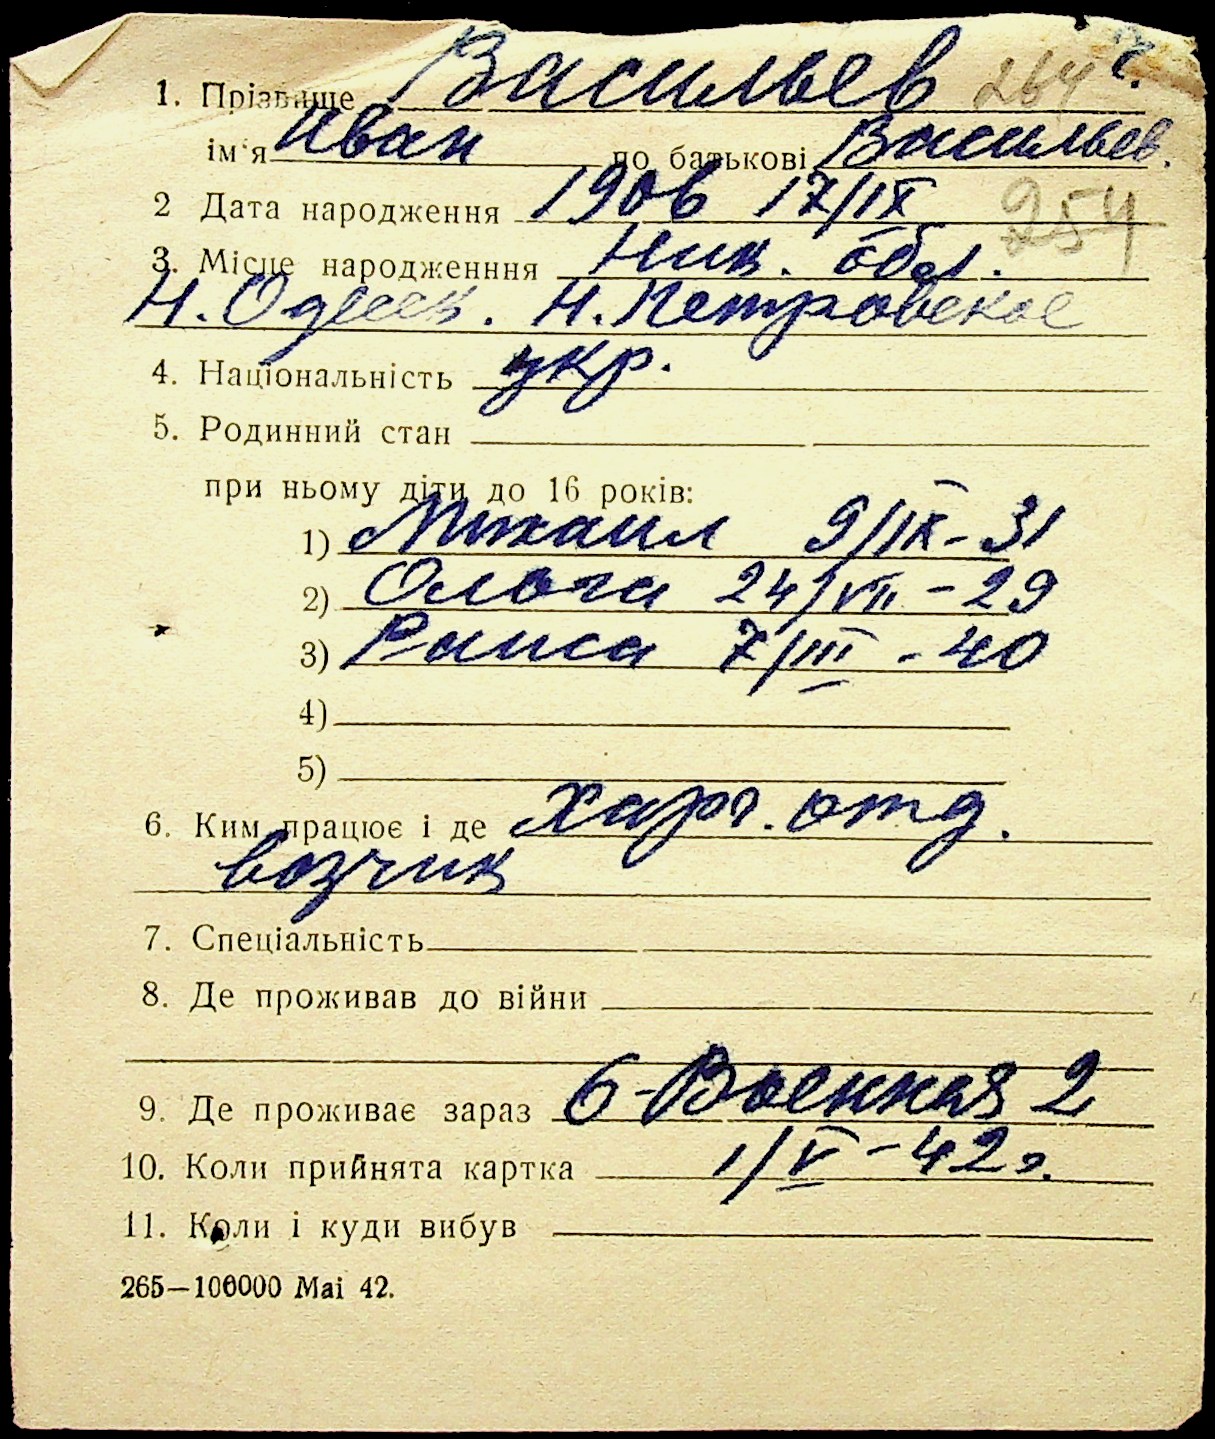 1. Прізвище Васильев 264
ім'я Иван по батькові Васильев.
2 Дата народження 1906 17/IX 254
3. Місце народженння Ник. обл.
Н. Одеск. Н. Петровское
4. Національність укр.
5. Родинний стан
при ньому діти до 16 років:
1) Михаил 9/IX-31
2) Ольга 24/VII-29
3) Раиса 7/III-40
4)
5)
6. Ким працює і де Харч. отд.
возчик
7. Спеціальність
8. Де проживав до війни
9. Де проживає зараз 6-Военная 2
10. Коли прийнята картка 1/V-42 г.
11. Коли і куди вибув
265—100000 Mai 42.